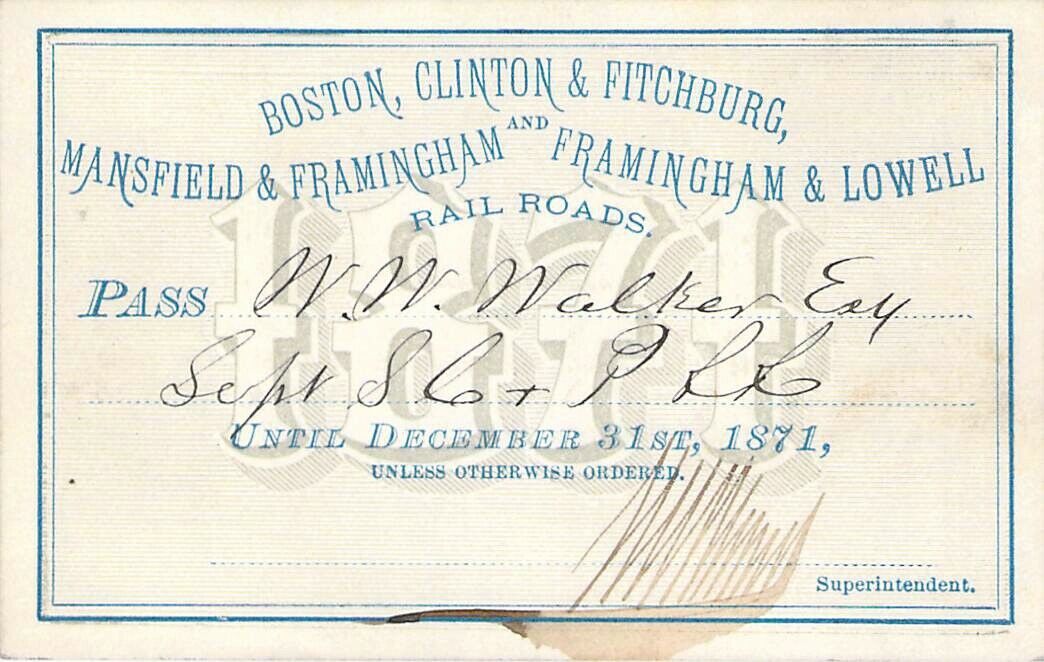 BOSTON, CLINTON & FITCHBURG,
MANSFIELD & FRAMINGHAM AND FRAMINGHAM & LOWELL
RAIL ROADS.
1871
PASS W. W. Walker Esq
Sept S C + P RR
UNTIL DECEMBER 31ST, 1871,
UNLESS OTHERWISE ORDERED.
Superintendent.